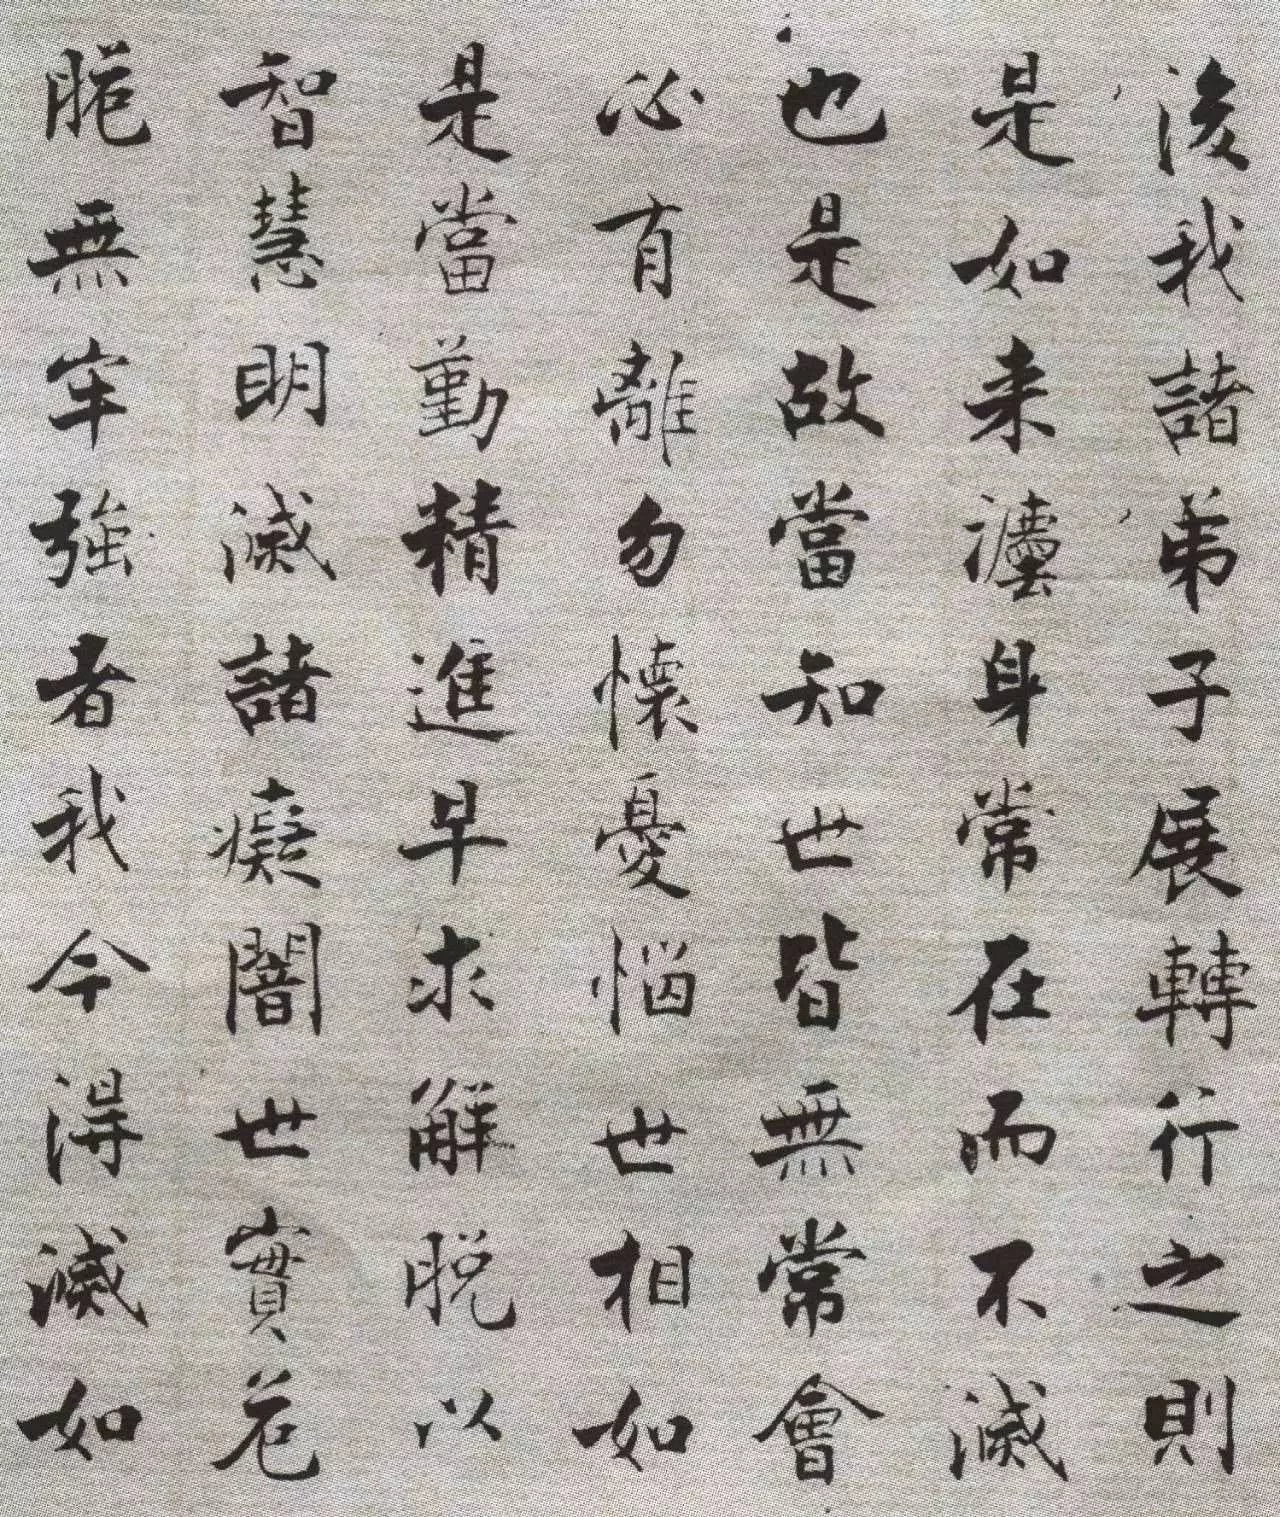 後我諸弟子展轉行之則
是如来灋身常在而不滅
也是故當知世皆無常會
必有離勿懷憂惱世相如
是當勤精進早求解脱以
智慧明滅諸癡闇世實危
脆無牢強者我今得滅如